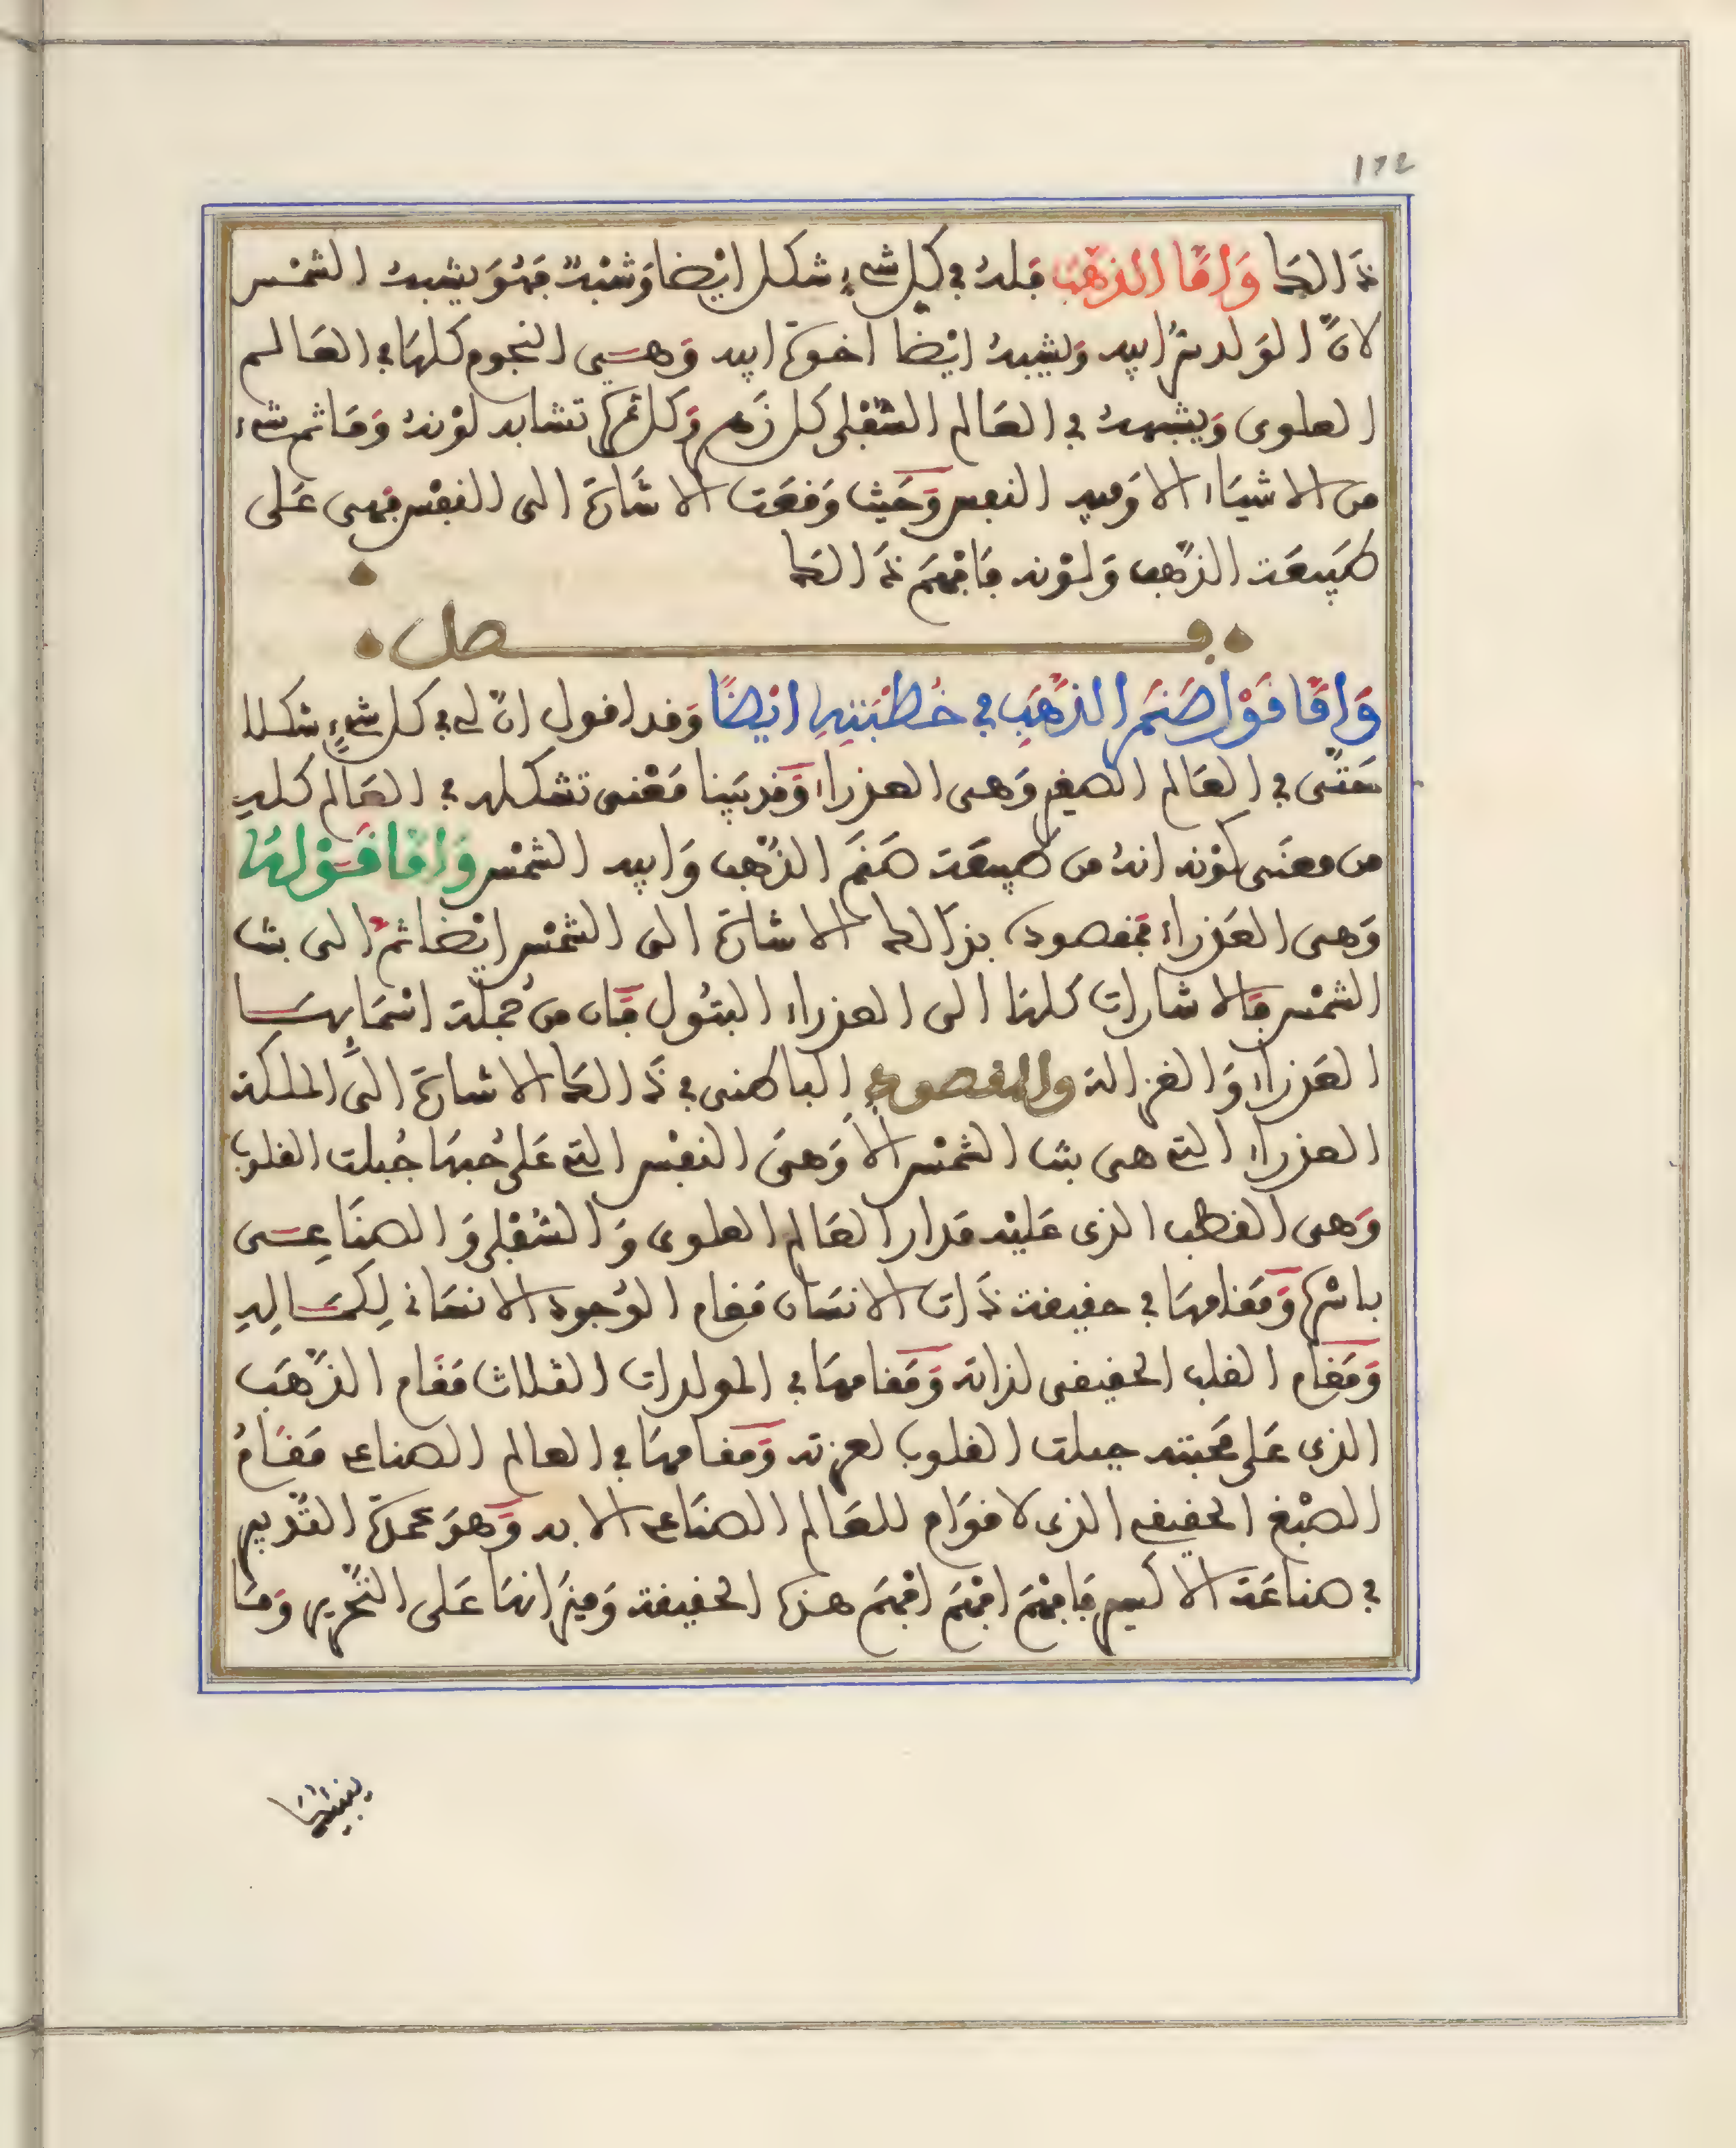 172
ذالك واما الذهب فله في كل شيء شكل ايضا وشبه فهو يشبه الشمس
لان الولد سر ابيه ويشبه ايضا اخوة ابيه وهي النجوم كلها في العالم
العلوي ويشبهه في العالم السفلي كل زهر وكل ثمرة تشابه لونه وما ثم شيء
من الاشياء الا وفيه النفس وحيث وقعت الاشارة الى النفس فهي على
طبيعة الذهب ولونه فافهم ذالك
فصل
واما قول صنم الذهب في خطبته ايضا وقد اقول ان لي في كل شيء شكلا
حتى في العالم الصغير وهي العذراء وقد بينا معنى تشكله في العالم كله
من معنى كونه انه من طبيعة صنم الذهب وابيه الشمس واما قولها
وهي العذراء فمقصوده بذالك الاشارة الى الشمس ايضا ثم الى بنت
الشمس فالاشارات كلها الى العذراء البتول فان من جملة اسمايها
العذراء والغزالة والمقصود الباطني في ذالك الاشارة الى الملكة
العذراء التي هي بنت الشمس الا وهي النفس التي على حبها جبلت القلوب
وهي القطب الذي عليه مدار العالم العلوي والسفلي والصناعي
باسرها ومقامها في حقيقة ذات الانسان مقام الوجود الانساني لكماله
ومقام القلب الحقيقي لذاته ومقامها في المولدات الثلاث مقام الذهب
الذي على محبته جبلت القلوب لعزته ومقامها في العالم الصناعي مقام
الصبغ الحقيقي الذي لا قوام للعالم الصناعي الا به وهو عمدة التدبير
في صناعة الاكسير فافهم افهم افهم هذه الحقيقة وميزانها على التحرير وما